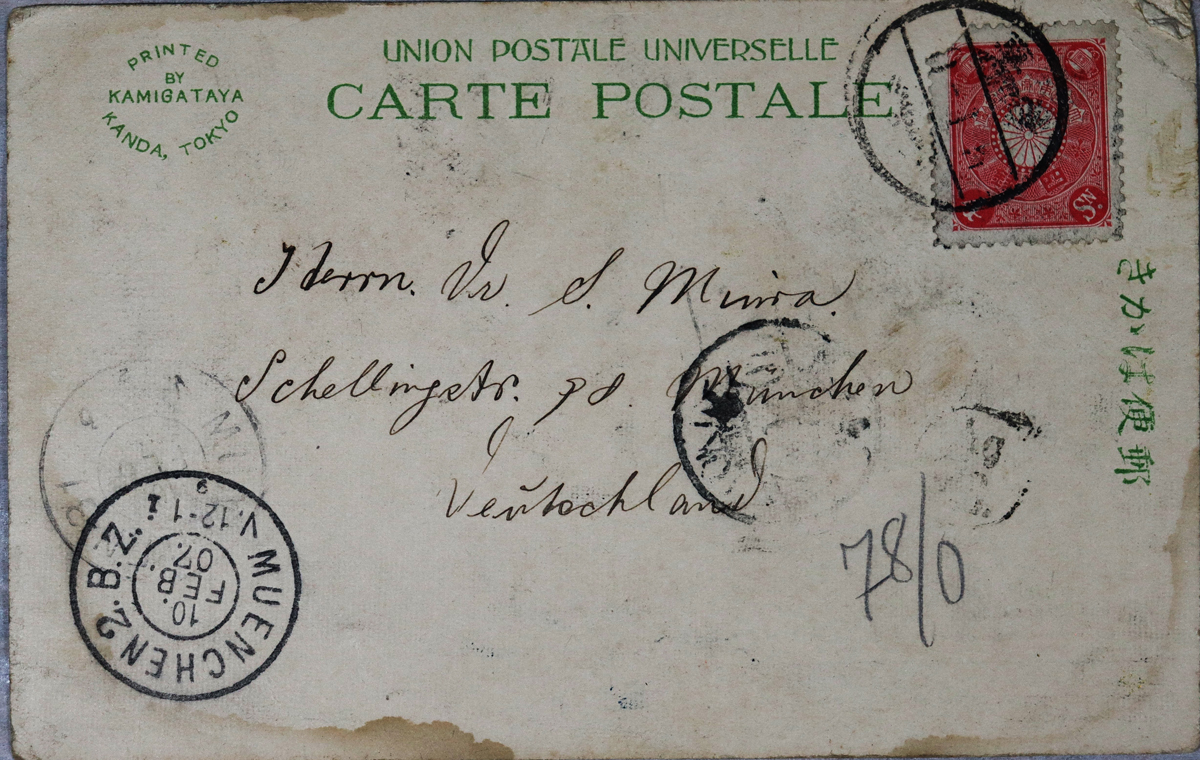 PRINTED
BY
KAMIGATAYA
KANDA, TOKYO
UNION POSTALE UNIVERSELLE
CARTE POSTALE
4 Sn.
Herrn. Dr. S. Miura.
Schellingstr. 78. München
Deutschland
きかは便郵
78/0
MUENCHEN 2. B.Z.
V. 12-1
10.
FEB.
07.